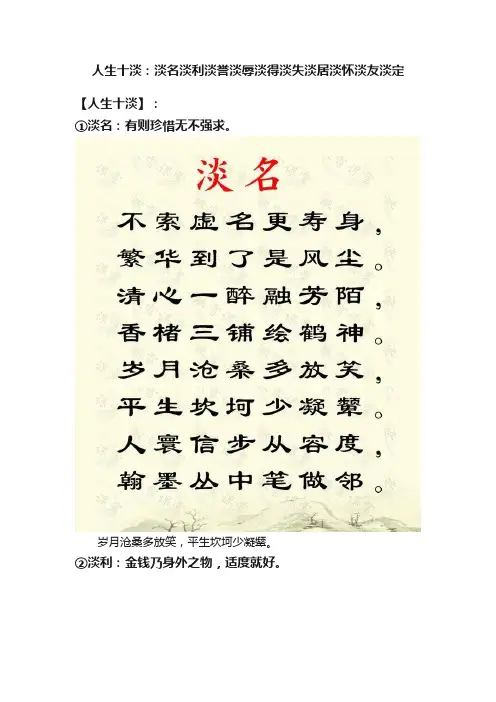 人生十淡：淡名淡利淡誉淡辱淡得淡失淡居淡怀淡友淡定
【人生十淡】：
①淡名：有则珍惜无不强求。
淡名
不索虚名更寿身，
繁华到了是风尘。
清心一醉融芳陌，
香楮三铺绘鹤神。
岁月沧桑多放笑，
平生坎坷少凝颦。
人寰信步从容度，
翰墨丛中笔做邻。
岁月沧桑多放笑，平生坎坷少凝颦。
②淡利：金钱乃身外之物，适度就好。